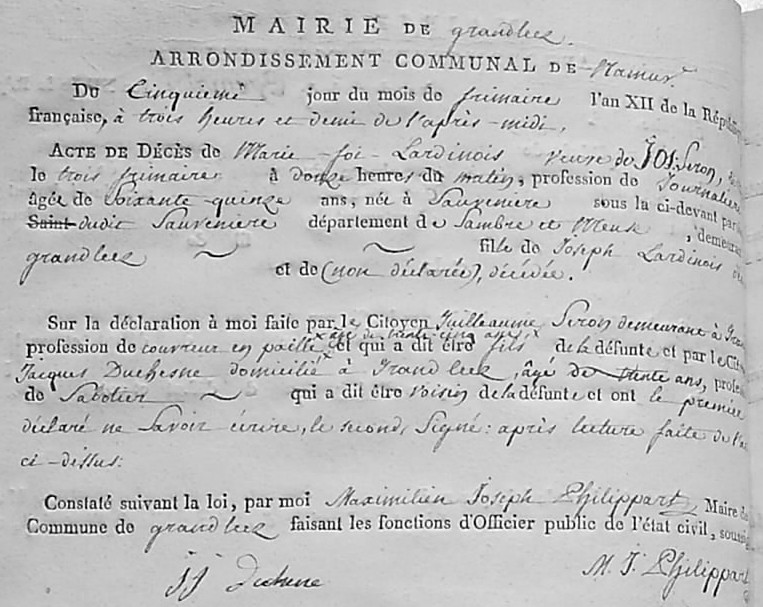 MAIRIE DE grandleez.
ARRONDISSEMENT COMMUNAL DE Namur
Du Cinquieme jour du mois de frimaire l'an XII de la Républi
française, à trois heures et demi de l'après-midi,
ACTE DE DÉCÈS de Marie-foi-Lardinois veuve de JOS: Seron,
le trois frimaire à douze heures du matin, profession de Journaliere
âgée de Soixante-quinze ans, née à Sauveniere sous la ci-devant par
Saint dudit Sauveniere département de Sambre et Meuse, demeurant
grandleez ~ ~ fille de Joseph Lardinois
et de (non déclarée), décédée.
Sur la déclaration à moi faite par le Citoyen Guilleaume Seron demeurant à Gran
× agé de trente cinq ans ×
profession de couvreur en paille et qui a dit être fils de la défunte et par le Cit
Jacques Duchesne domicilié à Grandleez, âgé de trente ans, profes
de Sabotier ~ qui a dit être voisin de la défunte et ont le premier
déclaré ne Savoir écrire, le second, Signé: après lecture faite de l'ac
ci-dessus:
Constaté suivant la loi, par moi Maximilien Joseph Philippart, Maire de
Commune de grandleez faisant les fonctions d'Officier public de l'état civil, soussig
jj duchene M. J. Philippart